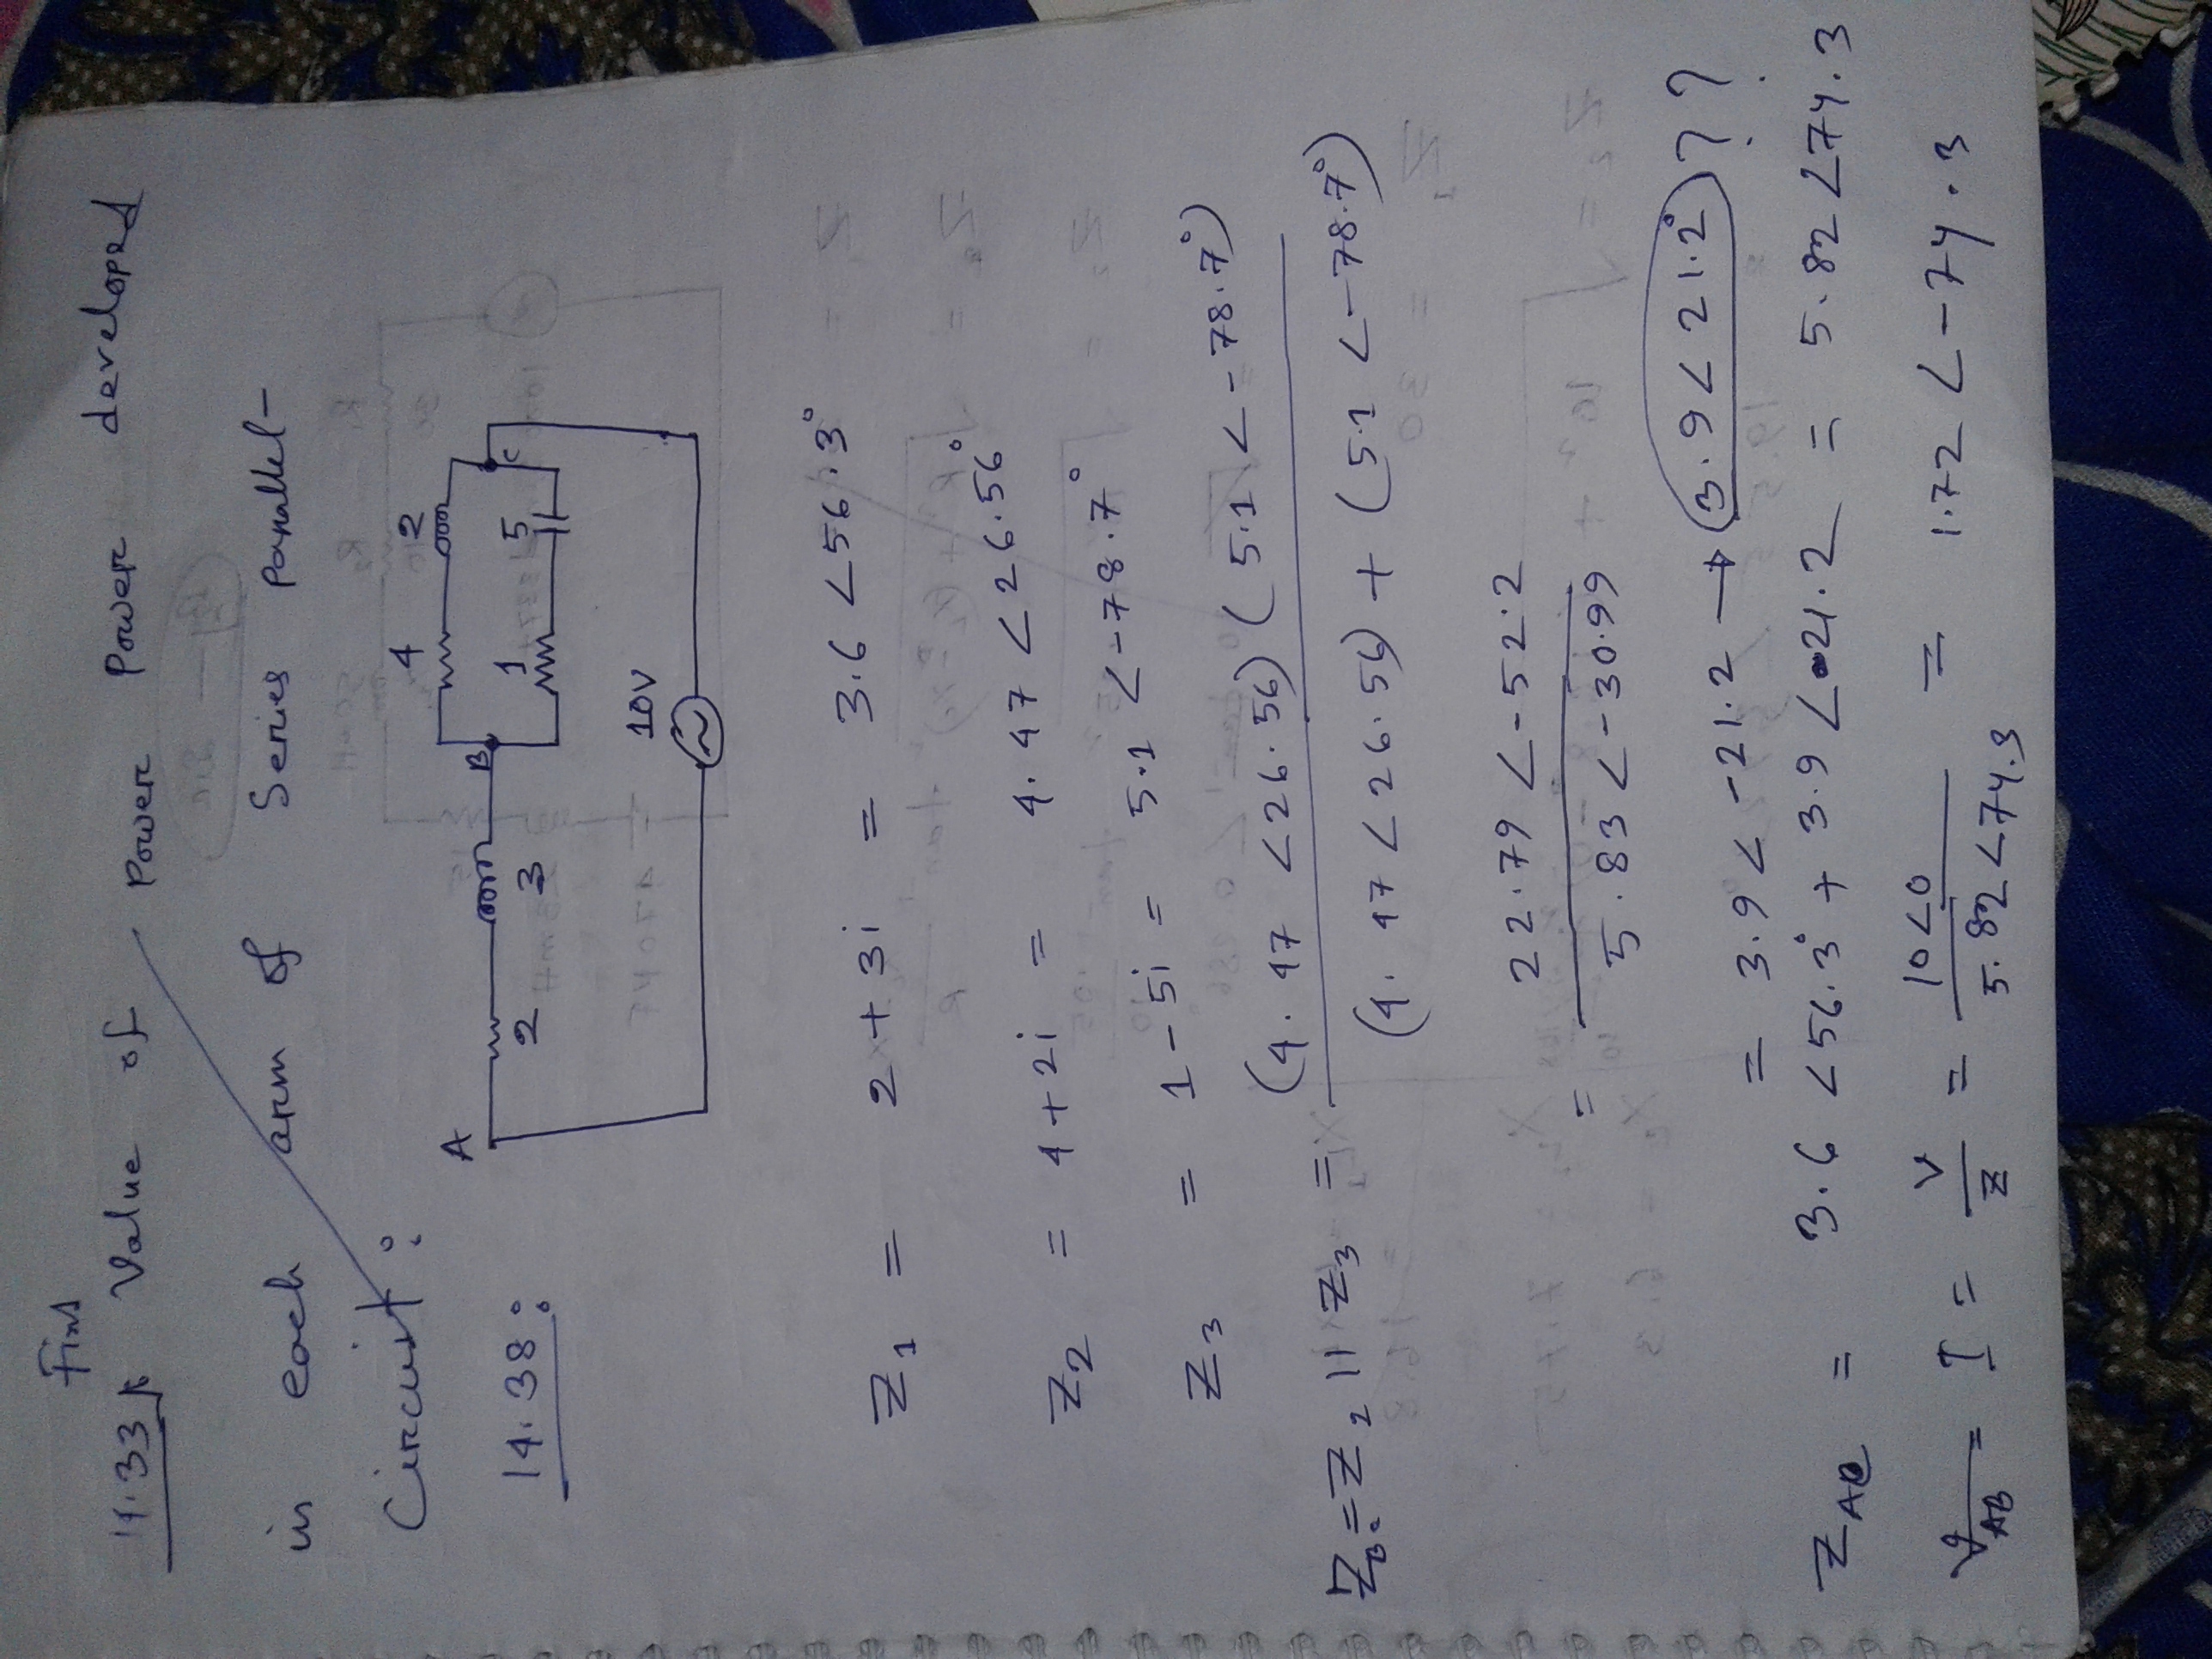 Find
14.33 Value of Power Power developed
in each arm of Series parallel-
Circuit :
14.38 :
A
2
3
B
4
2
1
5
C
10V
Z1 = 2 + 3i = 3.6 ∠56.3°
Z2 = 4+2i = 4.47 ∠26.56°
Z3 = 1 - 5i = 5.1 ∠-78.7°
= Z2 || Z3 = (4.47 ∠26.56) (5.1 ∠-78.7°)
(4.47 ∠26.56) + (5.1 ∠-78.7°)
= 22.79 ∠-52.2
5.83 ∠-30.99
= 3.9 ∠ -21.2 → 3.9 ∠ 21.2° ??
Z = 3.6 ∠56.3° + 3.9 ∠ 21.2 = 5.82 ∠74.3
VAB = I = V/Z = 10∠0 = 1.72 ∠-74.3
5.82 ∠74.3